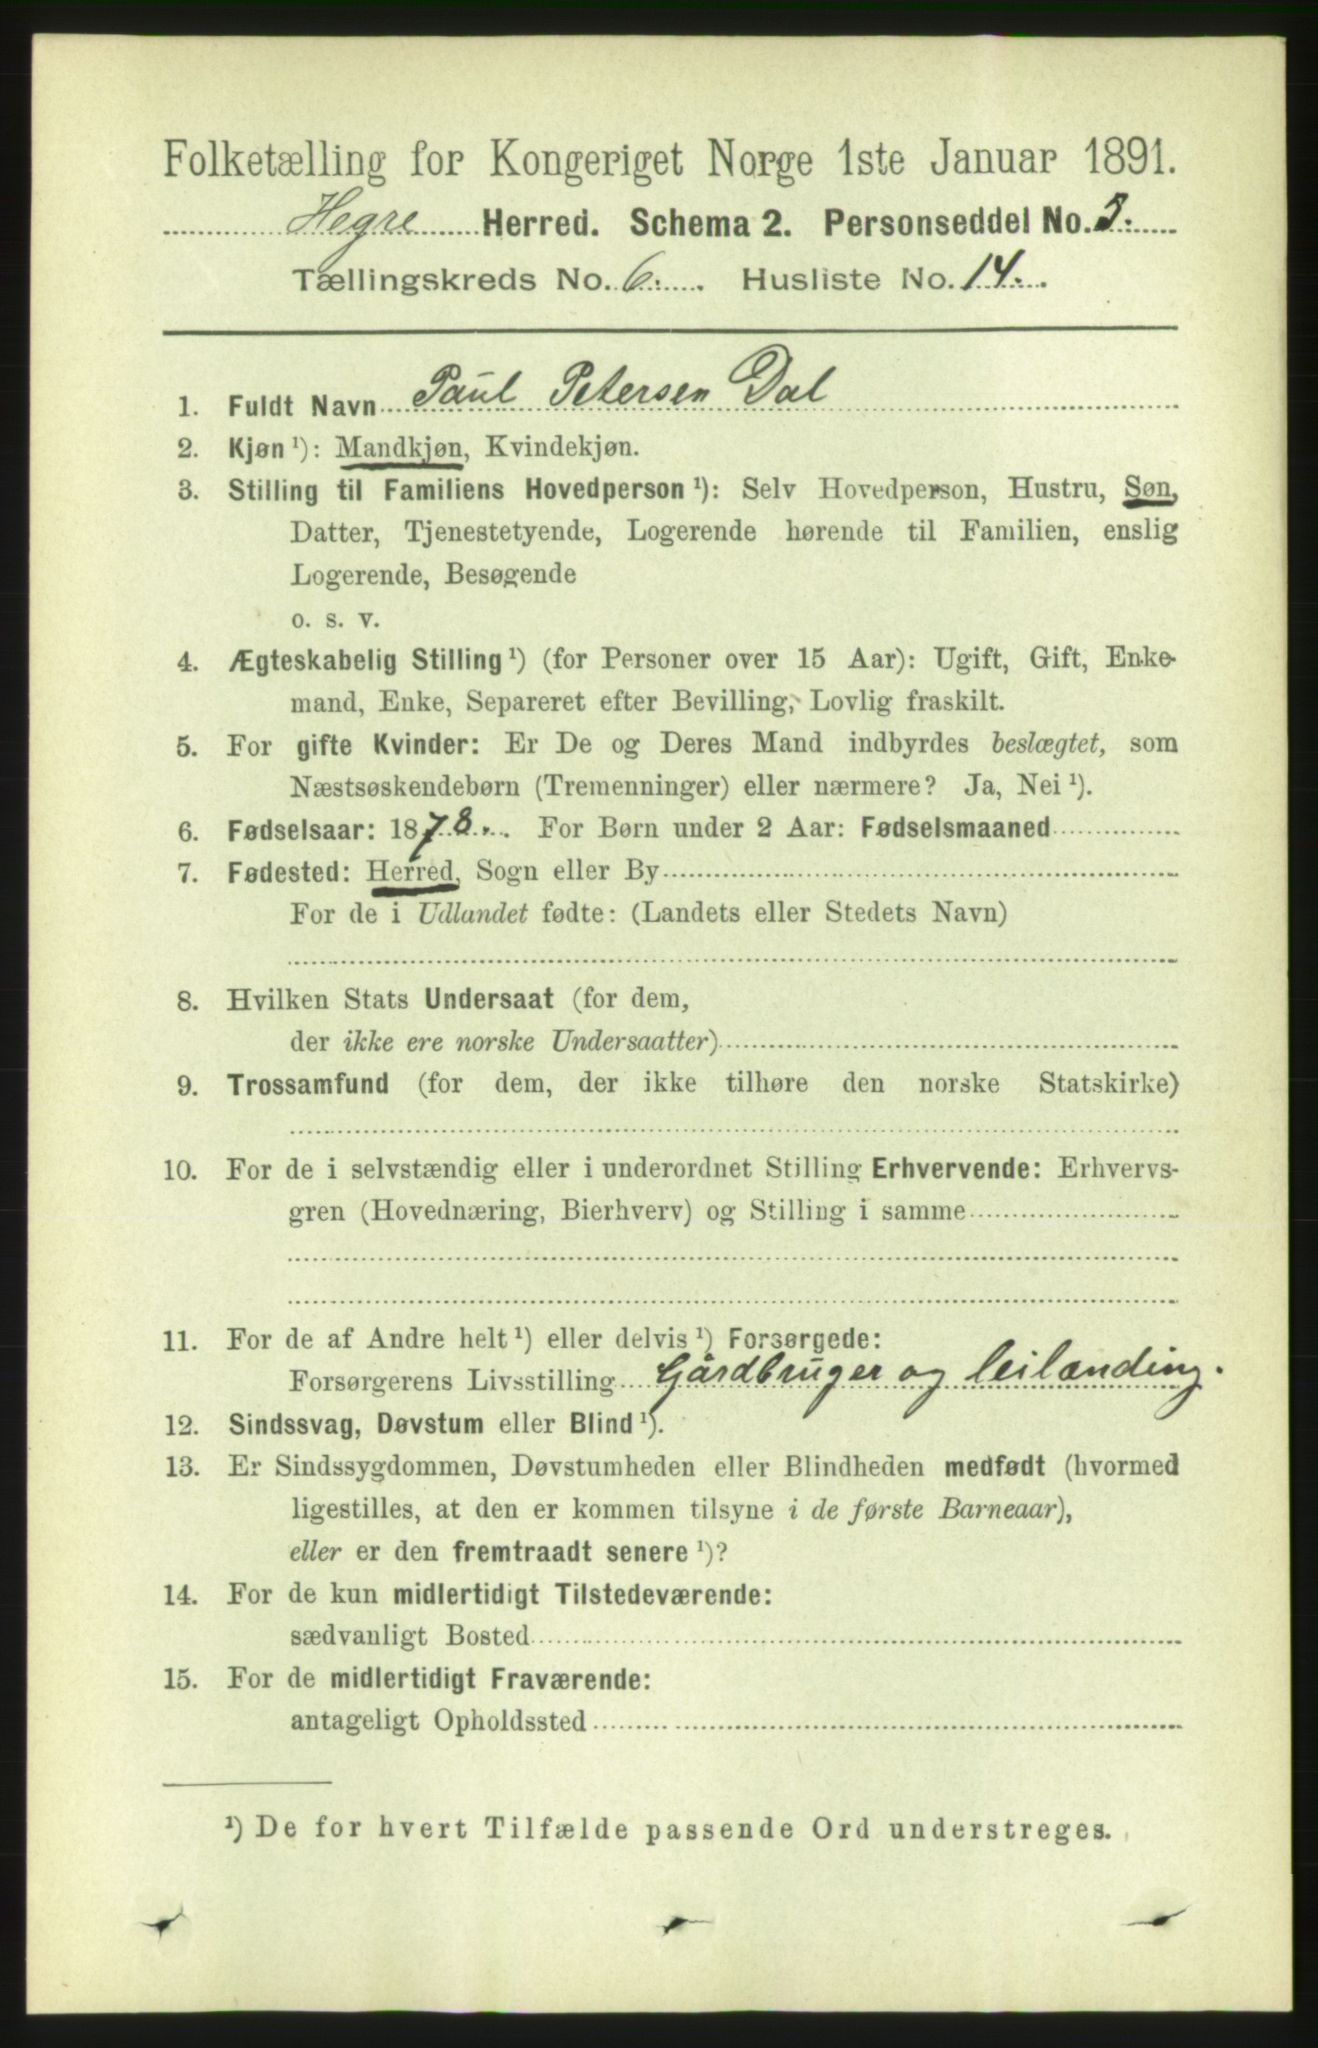 Folketælling for Kongeriget Norge 1ste Januar 1891.
Hegre Herred. Schema 2. Personseddel No. 3.
Tællingskreds No. 6. Husliste No. 14.
1. Fuldt Navn Paul Petersen Dal
2. Kjøn ¹): Mandkjøn, Kvindekjøn.
3. Stilling til Familiens Hovedperson ¹): Selv Hovedperson, Hustru, Søn,
Datter, Tjenestetyende, Logerende hørende til Familien, enslig
Logerende, Besøgende
o. s. v.
4. Ægteskabelig Stilling ¹) (for Personer over 15 Aar): Ugift, Gift, Enke-
mand, Enke, Separeret efter Bevilling, Lovlig fraskilt.
5. For gifte Kvinder: Er De og Deres Mand indbyrdes beslægtet, som
Næstsøskendebørn (Tremenninger) eller nærmere? Ja, Nei ¹).
6. Fødselsaar: 1878. For Børn under 2 Aar: Fødselsmaaned
7. Fødested: Herred, Sogn eller By
For de i Udlandet fødte: (Landets eller Stedets Navn)
8. Hvilken Stats Undersaat (for dem,
der ikke ere norske Undersaatter)
9. Trossamfund (for dem, der ikke tilhøre den norske Statskirke)
10. For de i selvstændig eller i underordnet Stilling Erhvervende: Erhvervs-
gren (Hovednæring, Bierhverv) og Stilling i samme
11. For de af Andre helt ¹) eller delvis ¹) Forsørgede:
Forsørgerens Livsstilling Gårdbruger og leilænding.
12. Sindssvag, Døvstum eller Blind ¹).
13. Er Sindssygdommen, Døvstumheden eller Blindheden medfødt (hvormed
ligestilles, at den er kommen tilsyne i de første Barneaar),
eller er den fremtraadt senere ¹)?
14. For de kun midlertidigt Tilstedeværende:
sædvanligt Bosted
15. For de midlertidigt Fraværende:
antageligt Opholdssted
¹) De for hvert Tilfælde passende Ord understreges.